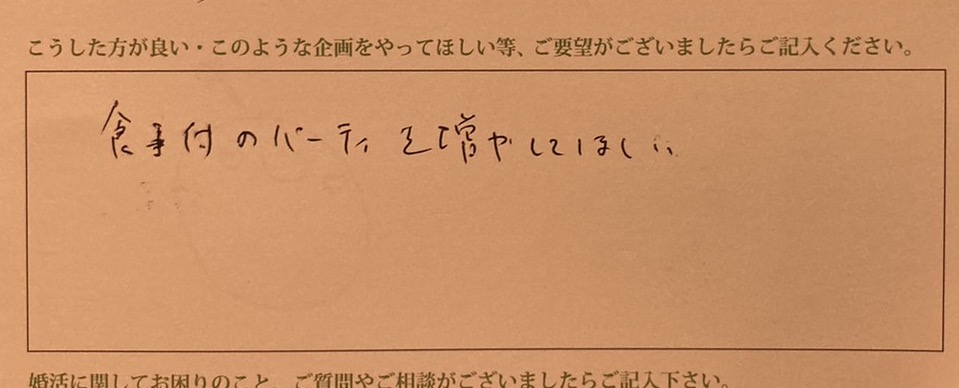 こうした方が良い・このような企画をやってほしい等、ご要望がございましたらご記入ください。
食事付のパーティを増やしてほしい
婚活に関してお困りのこと、ご質問やご相談がございましたらご記入下さい。